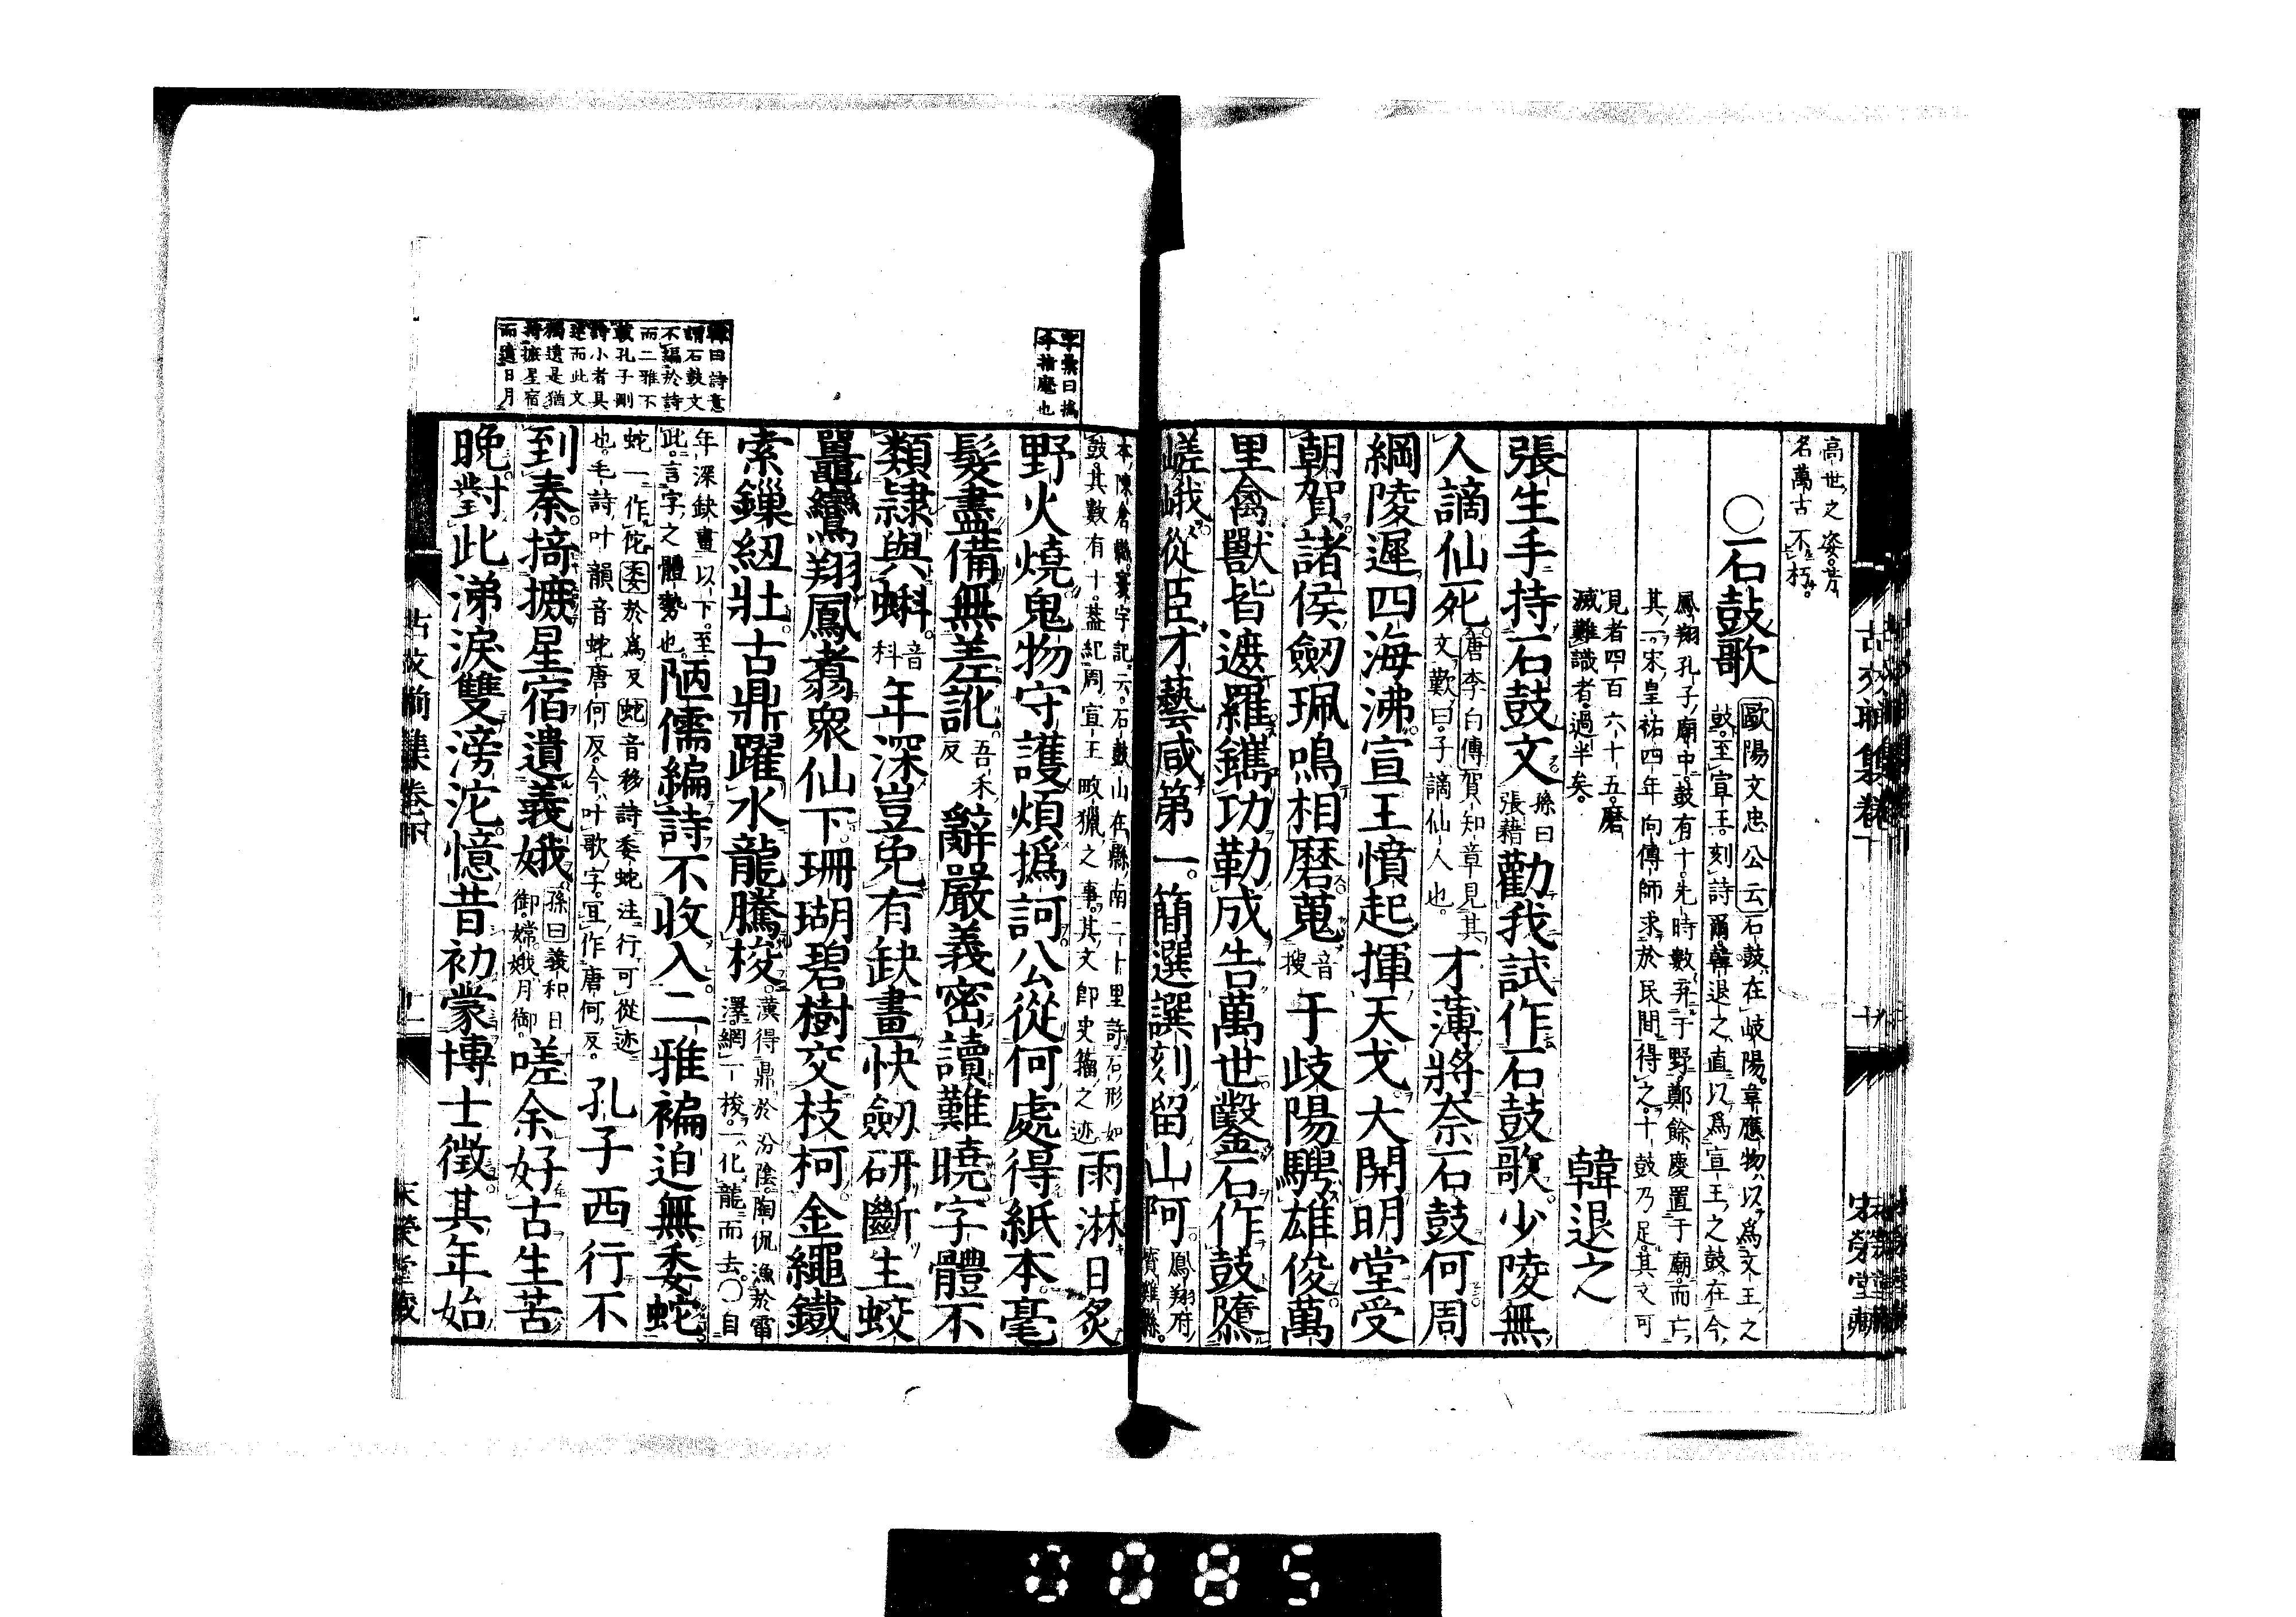 高世之姿芳
名萬古不朽
〇石鼓歌
歐陽文忠公云石鼓在岐陽韋應物以爲文王之
鼓至宣王刻詩爾韓退之直以爲宣王之鼓在今
鳳翔孔子廟中鼓有十先時散弃于野鄭餘慶置于廟而亡
其一宋皇祐四年向傳師求於民間得之十鼓乃足其文可
見者四百六十五磨
滅難識者過半矣
韓退之
張生手持石鼓文孫曰張籍勸我試作石鼓歌少陵無
人謫仙死唐李白傳賀知章見其文歎曰子謫仙人也才薄將奈石鼓何周
綱陵遲四海沸宣王憤起揮天戈大開明堂受
朝賀諸侯劒珮鳴相磨蒐音搜于歧陽騁雄俊萬
里禽獸皆遮羅鐫功勒成告萬世鑿石作鼓隳
嵯峨從臣才藝咸第一簡選譔刻留山阿鳳翔府寶雞縣
本陳倉縣寰宇記云石鼓山在縣南二十里許石形如
鼓其數有十葢紀周宣王畋獵之事其文即史籀之迹
雨淋日炙
野火燒鬼物守護煩撝訶公從何處得紙本毫
髮盡備無差訛吾禾反辭嚴義密讀難曉字體不
類隷與蝌音科年深豈免有缺畫快劒斫斷生蛟
鼉鸞翔鳳翥衆仙下珊瑚碧樹交枝柯金繩鐵
索鏁紐壯古鼎躍水龍騰梭漢得鼎於汾陰陶侃漁於雷澤網一梭一化龍而去〇自
年深缺畫以下至此言字之體勢也陋儒編詩不收入二雅褊迫無委蛇
蛇一作佗委於爲反蛇音移詩委蛇注行可從迹
也毛詩叶韻音蛇唐何反今叶歌字宜作唐何反
孔子西行不
到秦掎摭星宿遺義娥孫曰義和日御嫦娥月御嗟余好古生苦
晚對此涕淚雙滂沱憶昔初蒙博士徵其年始
字彙曰撝
手指麾也
韓曰詩意
謂石鼓文
不編於詩
而二雅不
載孔子刪
詩小者具
述而此文
獨遺是猶
掎摭星宿
而遺日月
0085